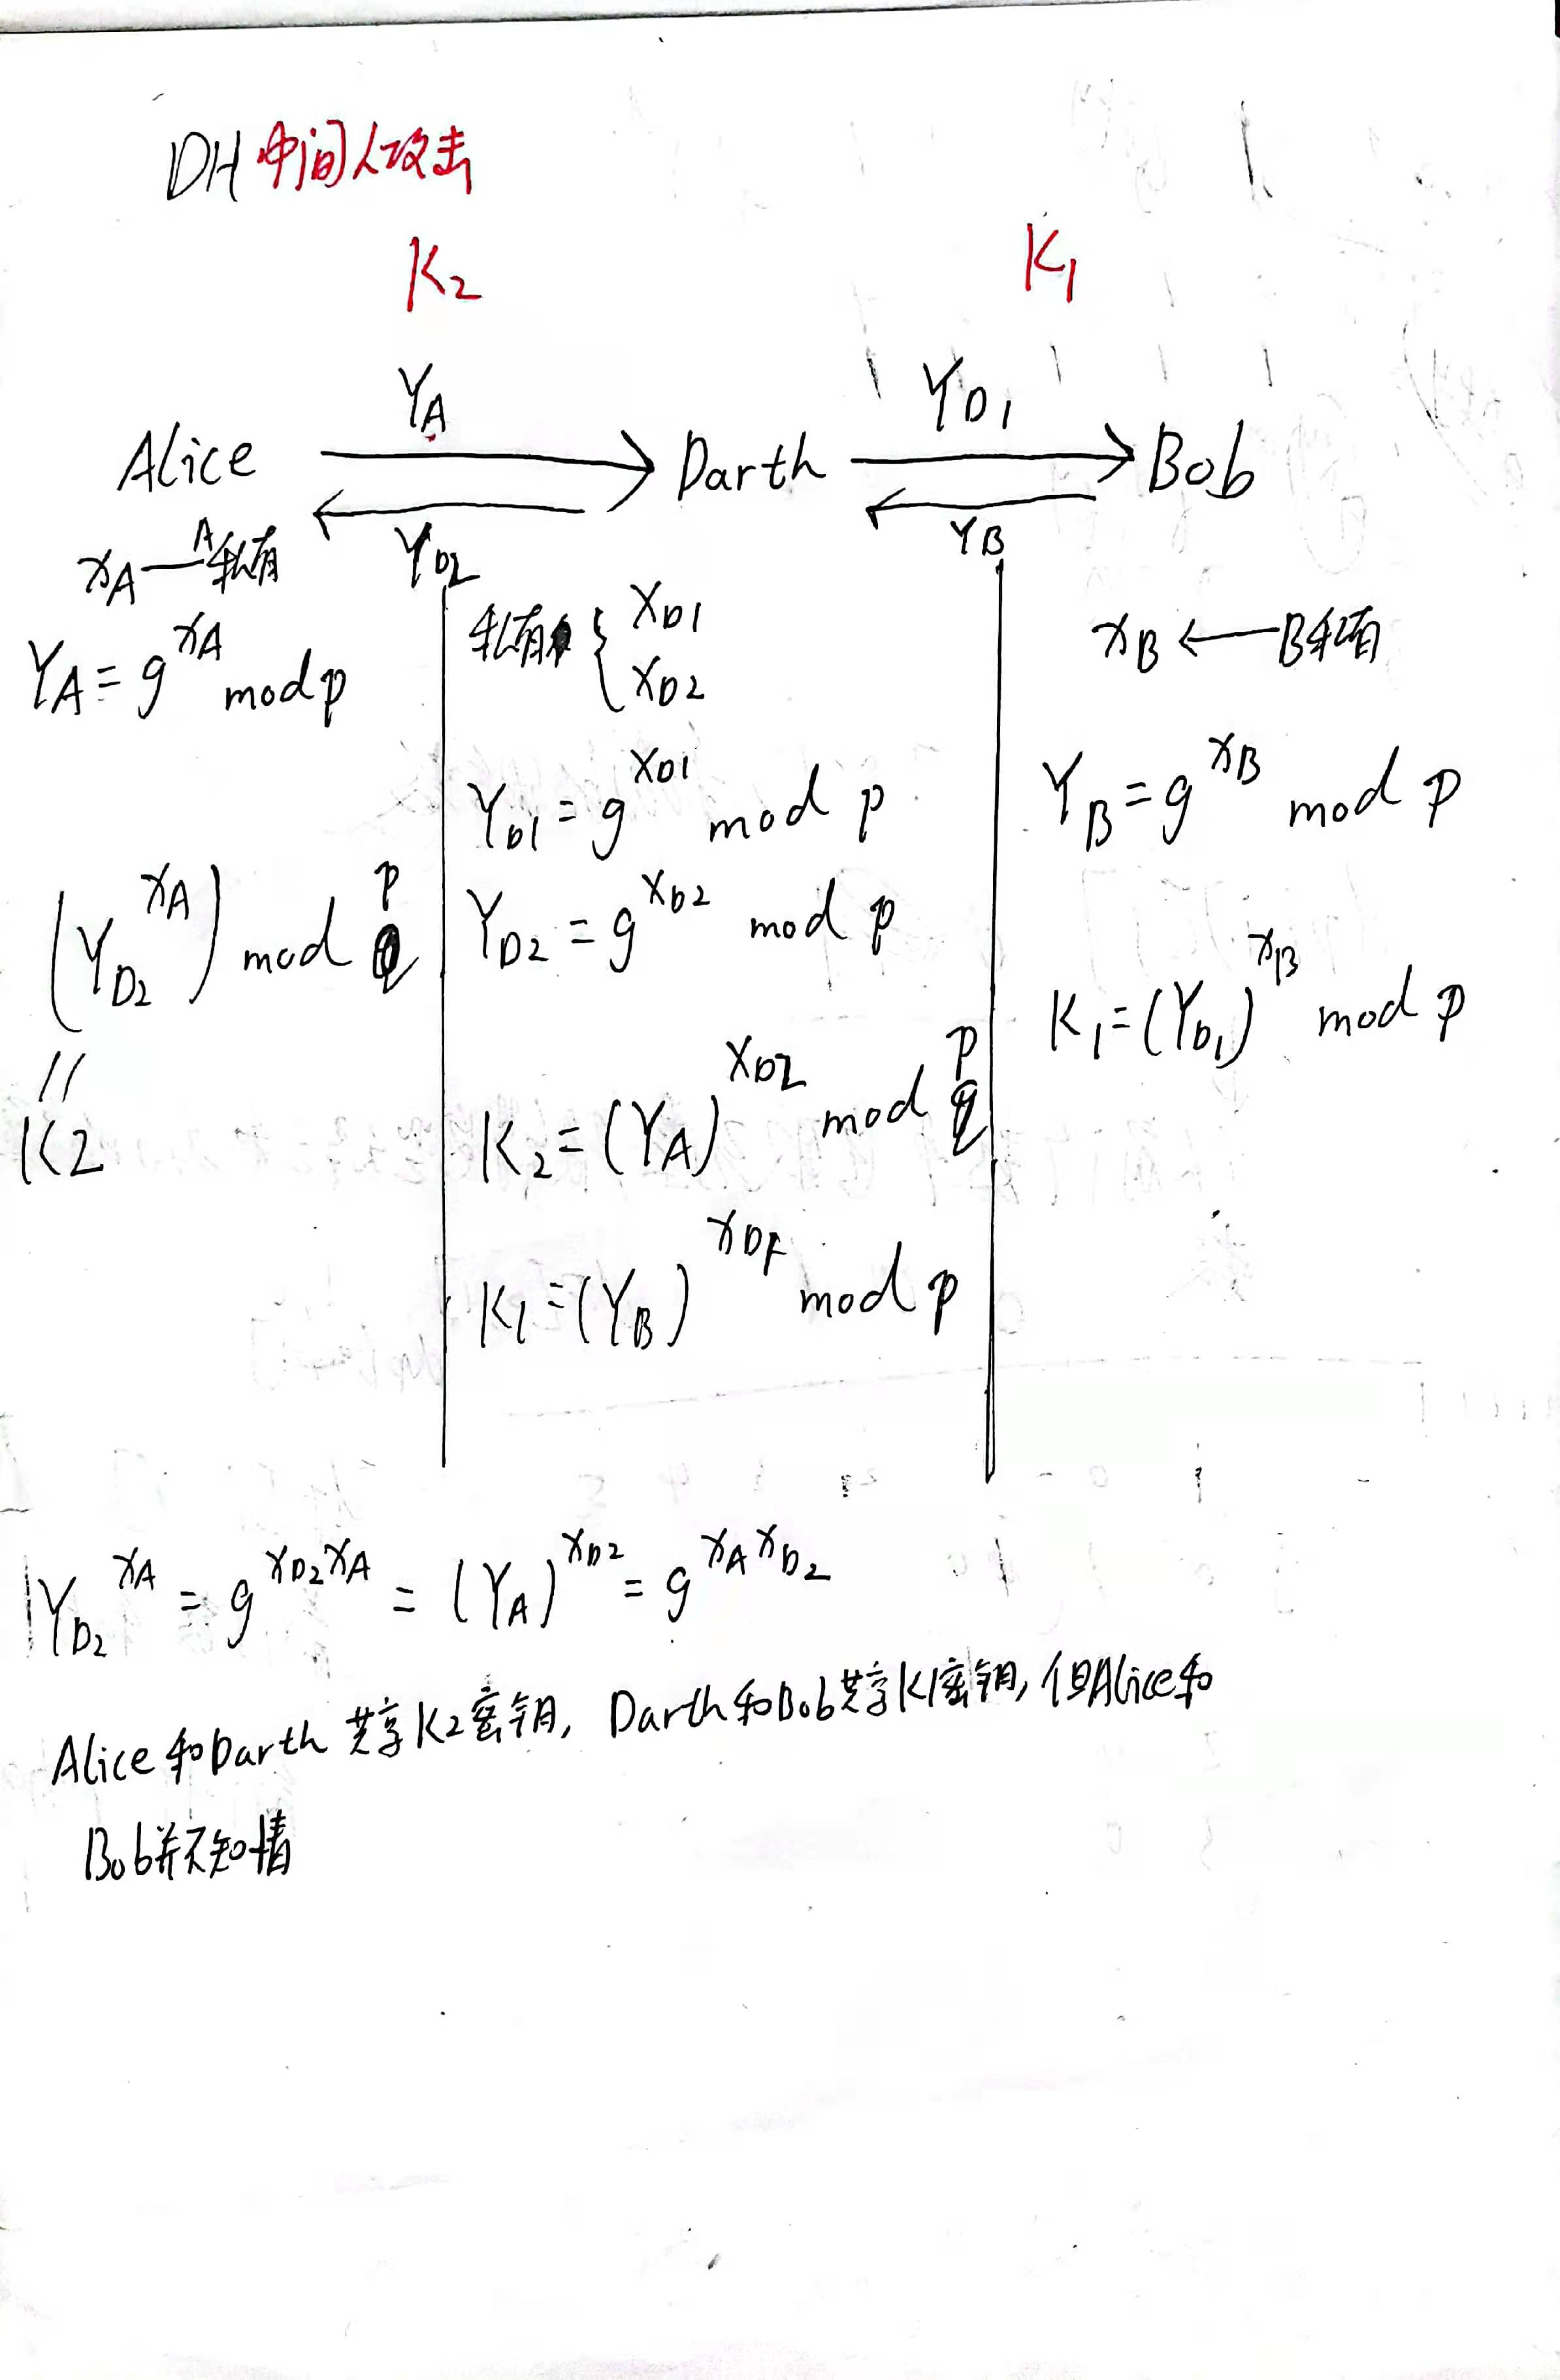 DH 中间人攻击
K₂ K₁
Y_A Y_D1
Alice Darth Bob
Y_D2 Y_B
x_A — A私有
Y_A = g^x_A mod p
(Y_D2^x_A) mod p
〃
K2
私有 { X_D1
X_D2
Y_D1 = g^X_D1 mod p
Y_D2 = g^X_D2 mod p
K₂ = (Y_A)^X_D2 mod p
K1 = (Y_B)^x_D1 mod p
x_B ← B私有
Y_B = g^x_B mod p
K₁ = (Y_D1)^x_B mod p
Y_D2^x_A = g^x_D2 x_A = (Y_A)^x_D2 = g^x_A x_D2
Alice和Darth 共享K2密钥, Darth和Bob共享K1密钥, 但Alice和
Bob并不知情